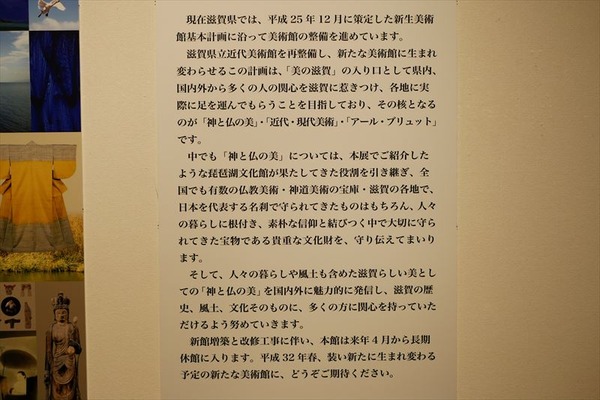 現在滋賀県では、平成25年12月に策定した新生美術
館基本計画に沿って美術館の整備を進めています。
滋賀県立近代美術館を再整備し、新たな美術館に生まれ
変わらせるこの計画は、「美の滋賀」の入り口として県内、
国内外から多くの人の関心を滋賀に惹きつけ、各地に実
際に足を運んでもらうことを目指しており、その核となる
のが「神と仏の美」・「近代・現代美術」・「アール・ブリュット」
です。
中でも「神と仏の美」については、本展でご紹介した
ような琵琶湖文化館が果たしてきた役割を引き継ぎ、全
国でも有数の仏教美術・神道美術の宝庫・滋賀の各地で、
日本を代表する名刹で守られてきたものはもちろん、人々
の暮らしに根付き、素朴な信仰と結びつく中で大切に守ら
れてきた宝物である貴重な文化財を、守り伝えてまいり
ます。
そして、人々の暮らしや風土も含めた滋賀らしい美とし
ての「神と仏の美」を国内外に魅力的に発信し、滋賀の歴
史、風土、文化そのものに、多くの方に関心を持っていた
だけるよう努めていきます。
新館増築と改修工事に伴い、本館は来年4月から長期
休館に入ります。平成32年春、装い新たに生まれ変わる
予定の新たな美術館に、どうぞご期待ください。